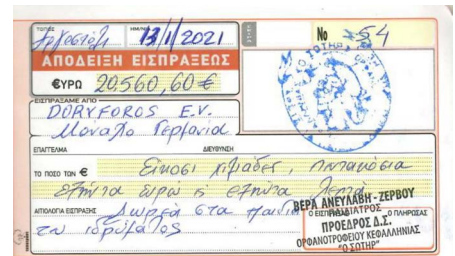 ΤΟΠΟΣ ΗΜΕΡ. No 54
Αργοστόλι 13/1/2021
ΑΠΟΔΕΙΞΗ ΕΙΣΠΡΑΞΕΩΣ
€ΥΡΩ 20.560,60 €
ΕΙΣΠΡΑΞΑΜΕ ΑΠΟ
DORYFOROS E.V.
Μόναχο Γερμανία
ΕΠΑΓΓΕΛΜΑ ΔΙΕΥΘΥΝΣΗ
ΤΟ ΠΟΣΟ ΤΩΝ € Είκοσι χιλιάδες, πεντακόσια
εξήντα ευρώ κ εξήντα λεπτά
ΑΙΤΙΟΛΟΓΙΑ ΕΙΣΠΡΑΞΗΣ Δωρεά στα παιδιά
του ιδρύματος
Ο ΕΙΣΠΡΑΞΑΣ Ο ΠΛΗΡΩΣΑΣ
ΒΕΡΑ ΑΝΕΥΛΑΒΗ - ΖΕΡΒΟΥ
ΠΡΟΕΔΡΟΣ Δ.Σ.
ΟΡΦΑΝΟΤΡΟΦΕΙΟΥ ΚΕΦΑΛΛΗΝΙΑΣ
"Ο ΣΩΤΗΡ"